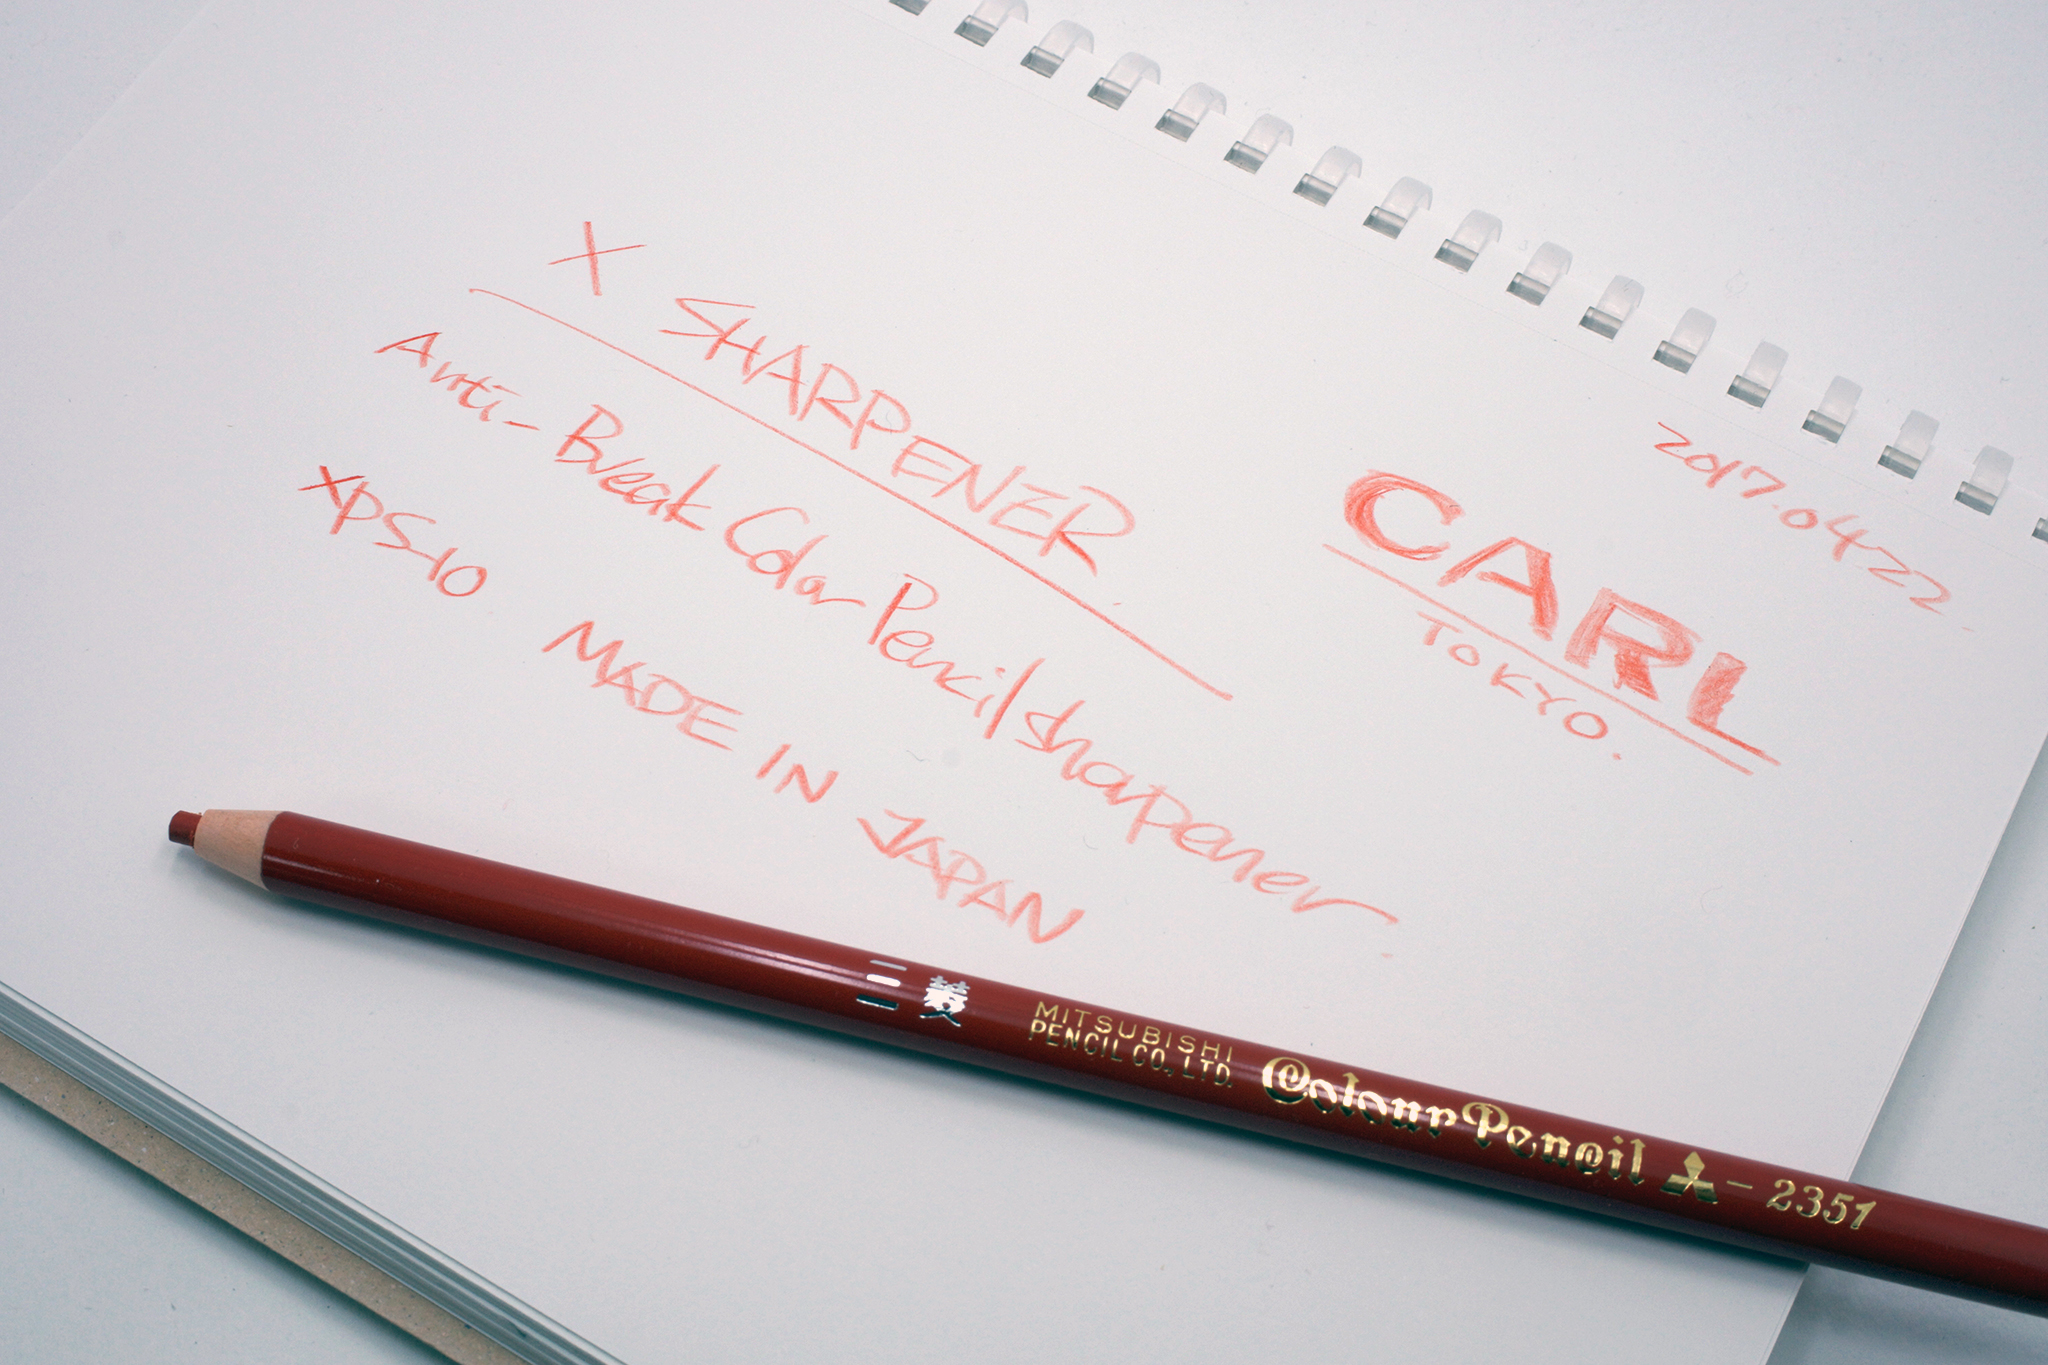 X SHARPENER
Anti-Break Color Pencil sharpener.
XPS-10
MADE IN JAPAN
2017.04.22.
CARL
TOKYO.
三菱
MITSUBISHI
PENCIL CO., LTD.
Colour Pencil - 2351